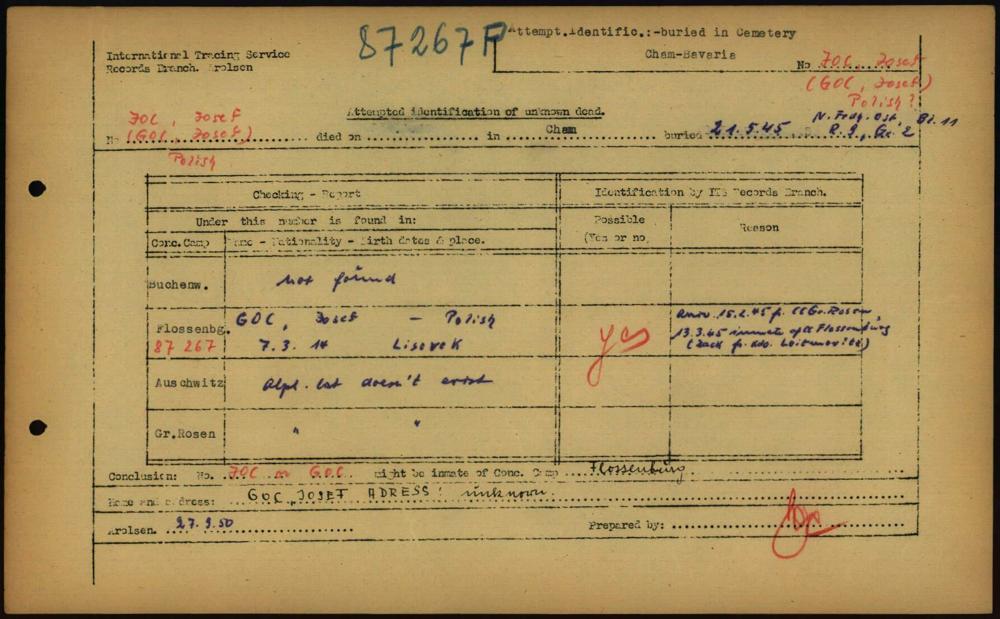 87267F
Attempt.Identific.:-buried in Cemetery
Cham-Bavaria
International Tracing Service
Records Branch. Arolsen
No JOC, Josef
(GOC, Josef)
Polish?
Attempted identification of unknown dead.
JOC, Josef
No (GOC, Josef) died on in Cham buried 21.5.45 N. Frdh. Ost, Bl. 11
R. 9, Gr. 2
Polish
Checking - Report
Identification by ITS Records Branch.
Under this number is found in:
Possible
(Yes or no)
Reason
Conc.Camp Name - Nationality - Birth dates & place.
Buchenw. not found
Flossenbg. GOC, Josef - Polish
87 267 7.3.14 Lisovek
yes
arriv. 15.2.45 f. CC Gr. Rosen,
13.3.45 inmate of CC Flossenbürg
(back fr. kdo. Leitmeritz)
Auschwitz alph. list doesn't exist
Gr.Rosen " "
Conclusion: No. JOC or GOC might be inmate of Conc. Camp Flossenbürg
Name and address: GOC, JOSEF ADRESS: unknown
Arolsen. 27.9.50 Prepared by: